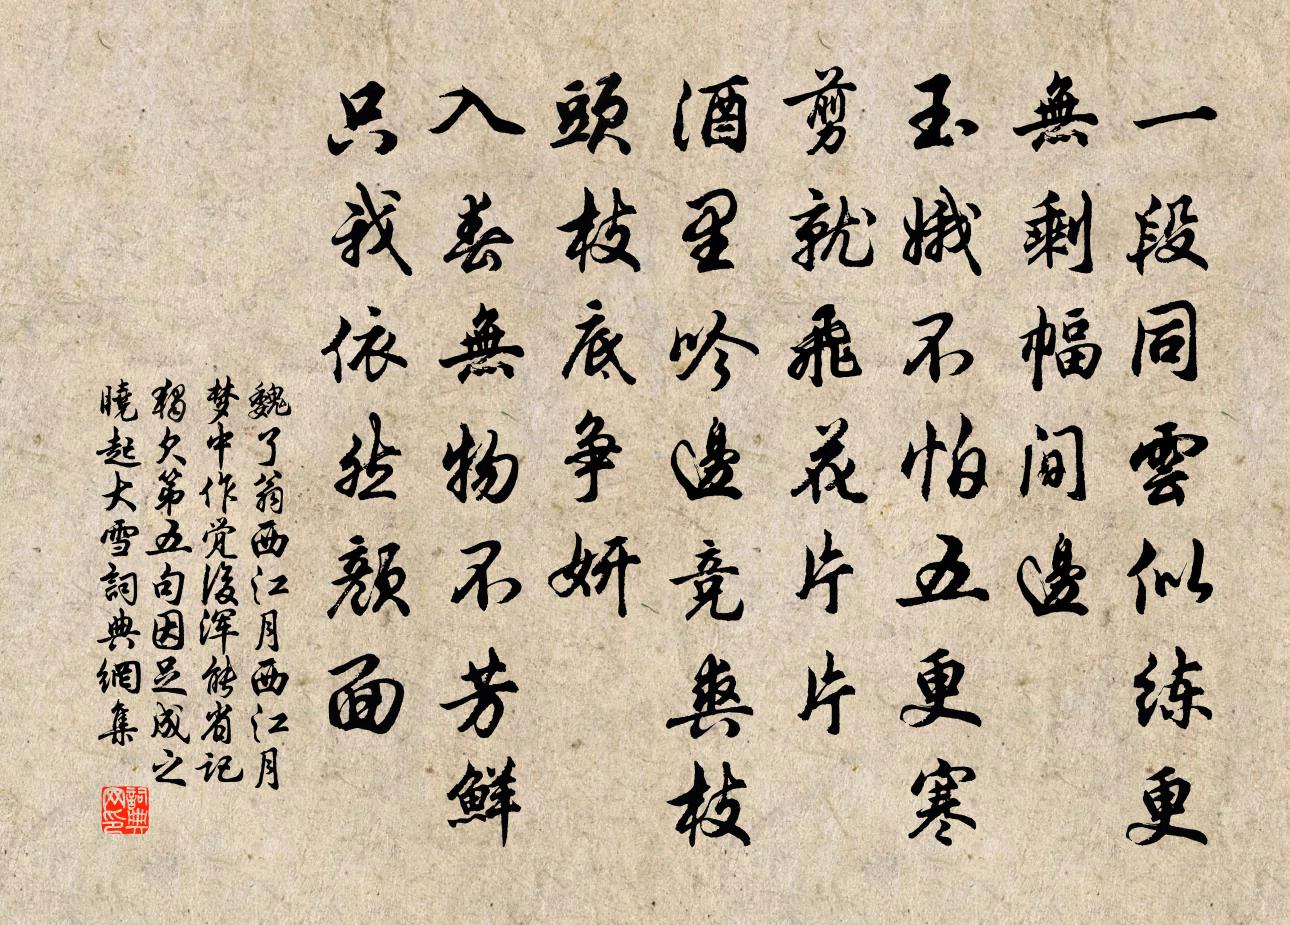 一段同雲似练更
無剩幅間邊
玉娥不怕五更寒
剪就飛花片片
酒里吟邊竞爽枝
頭枝底争妍
入春無物不芳鮮
只我依然顔面
魏了翁西江月西江月
梦中作觉後浑能省记
独欠第五句因足成之
曉起大雪詞典網集
詞典网印